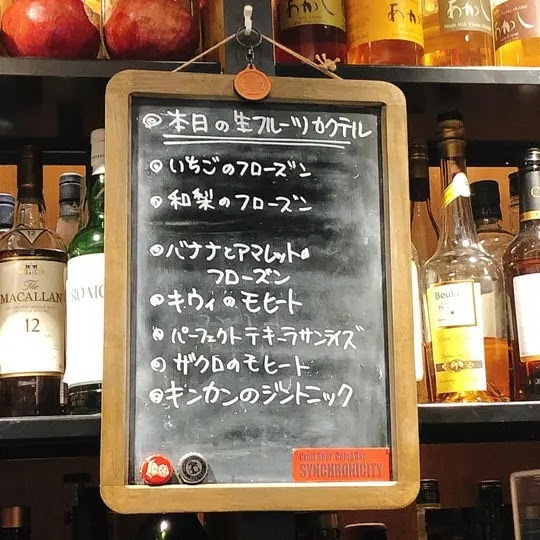 あかし
あかし
あかし
◎本日の生フルーツカクテル
◎いちごのフローズン
◎和梨のフローズン
◎バナナとアマレットの
フローズン
◎キウィのモヒート
◎パーフェクトテキーラサンライズ
◎ザクロのモヒート
◎キンカンのジントニック
MACALLAN
12
Craft Beer Cafe&Bar
SYNCHRONICITY